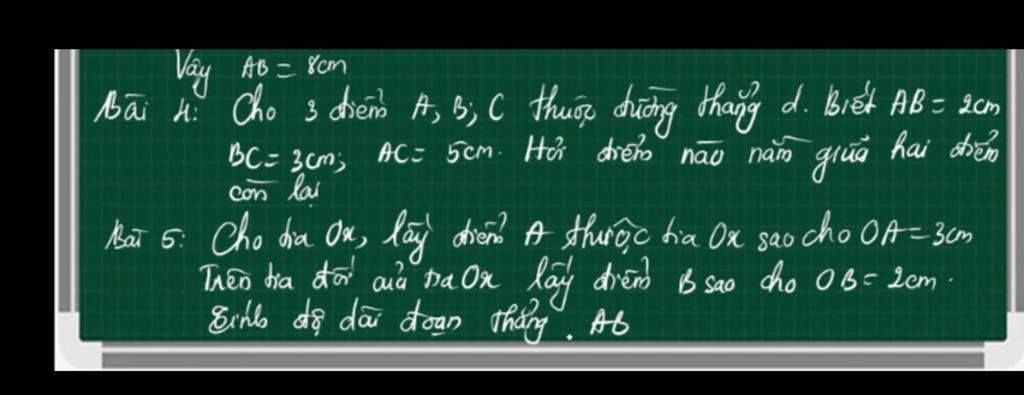 Vậy AB = 8cm
Bài 4: Cho 3 điểm A, B, C thuộc đường thẳng d. Biết AB = 2cm
BC = 3cm; AC = 5cm. Hỏi điểm nào nằm giữa hai điểm
còn lại
Bài 5: Cho tia Ox, lấy điểm A thuộc tia Ox sao cho OA = 3cm
Trên tia đối của tia Ox lấy điểm B sao cho OB = 2cm.
Tính độ dài đoạn thẳng. AB